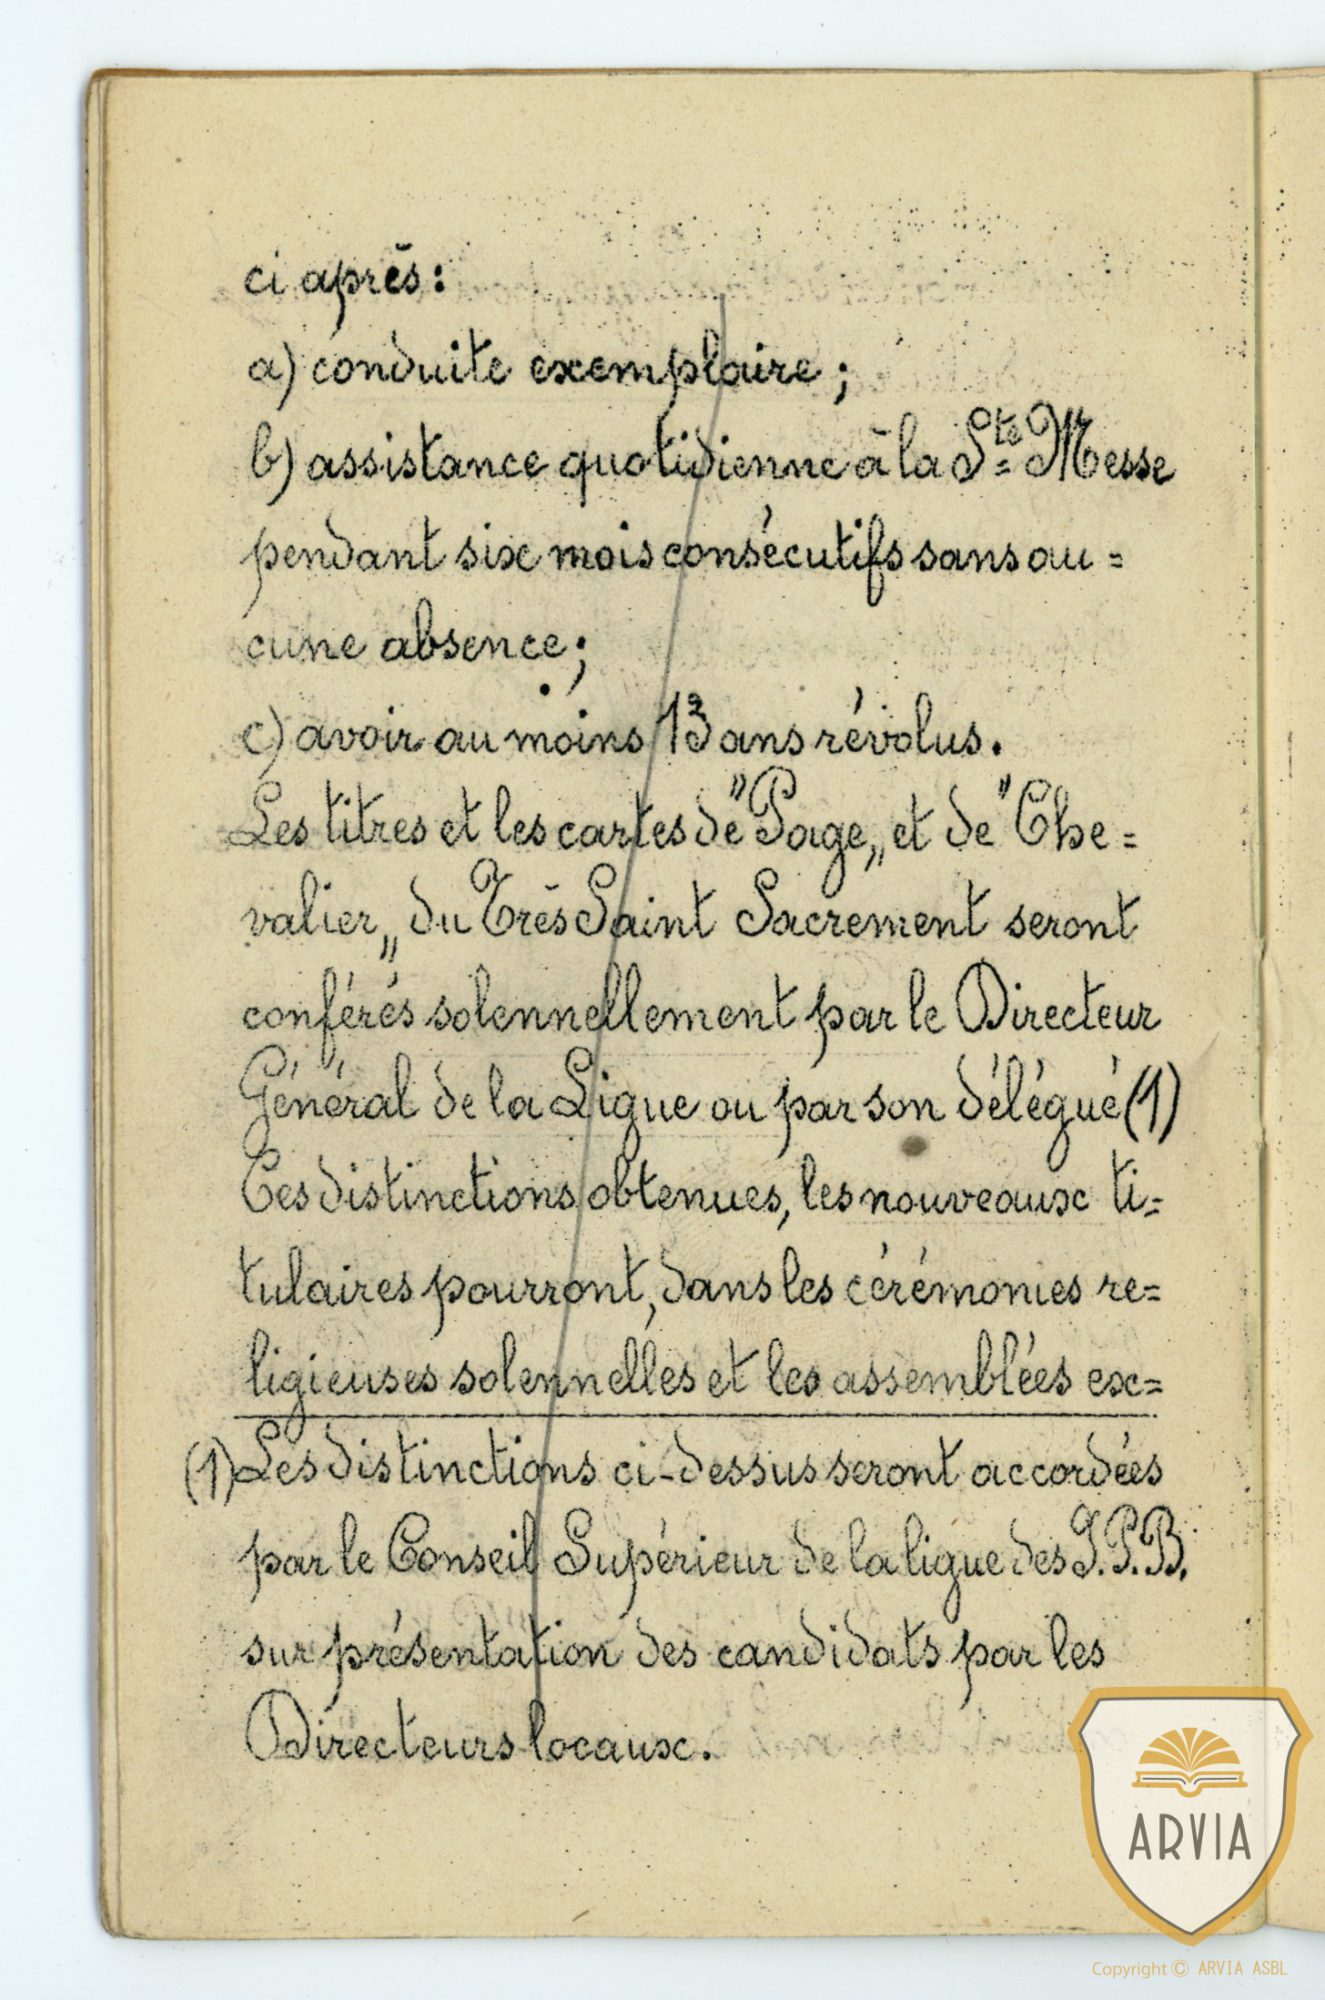 ci après:
a) conduite exemplaire;
b) assistance quotidienne à la Ste Messe
pendant six mois consécutifs sans au=
cune absence;
c) avoir au moins 13 ans révolus.
Les titres et les cartes de "Page„ et de "Che=
valier„ du Très Saint Sacrement seront
conférés solennellement par le Directeur
Général de la Ligue ou par son délégué (1)
Ces distinctions obtenues, les nouveaux ti=
tulaires pourront, dans les cérémonies re=
ligieuses solennelles et les assemblées ex=
(1) Les distinctions ci-dessus seront accordées
par le Conseil Supérieur de la ligue des J.P.B.
sur présentation des candidats par les
Directeurs locaux.
ARVIA
Copyright © ARVIA ASBL